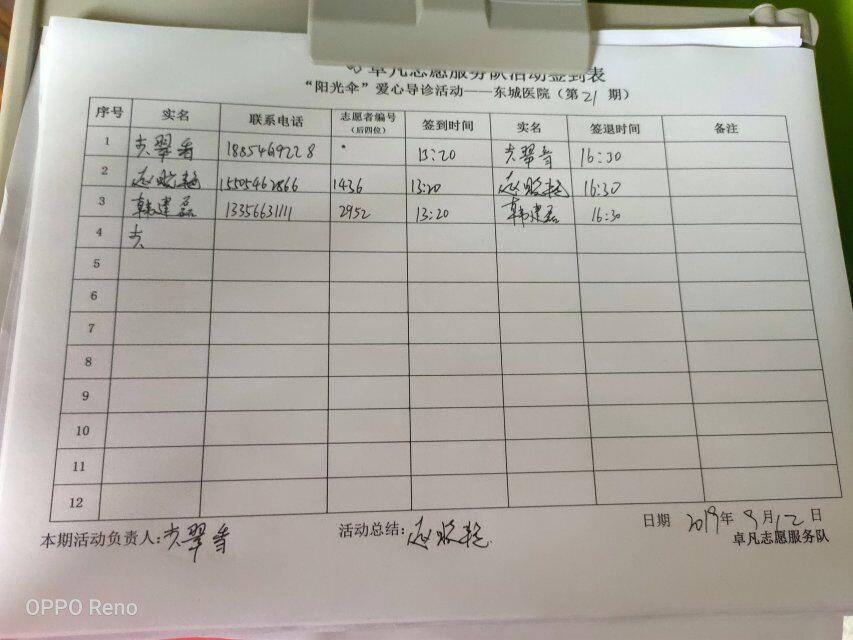 卓凡志愿服务队活动签到表
“阳光伞”爱心导诊活动——东城医院（第21期）
序号 实名 联系电话 志愿者编号（后四位） 签到时间 实名 签退时间 备注
1 翠香 1885469228 13:20 翠香 16:30
2 赵 15505462866 1436 13:20 赵 16:30
3 韩建磊 13356631111 2952 13:20 韩建磊 16:30
4
5
6
7
8
9
10
11
12
本期活动负责人: 翠香 活动总结: 赵 日期 2019年9月12日
卓凡志愿服务队
OPPO Reno